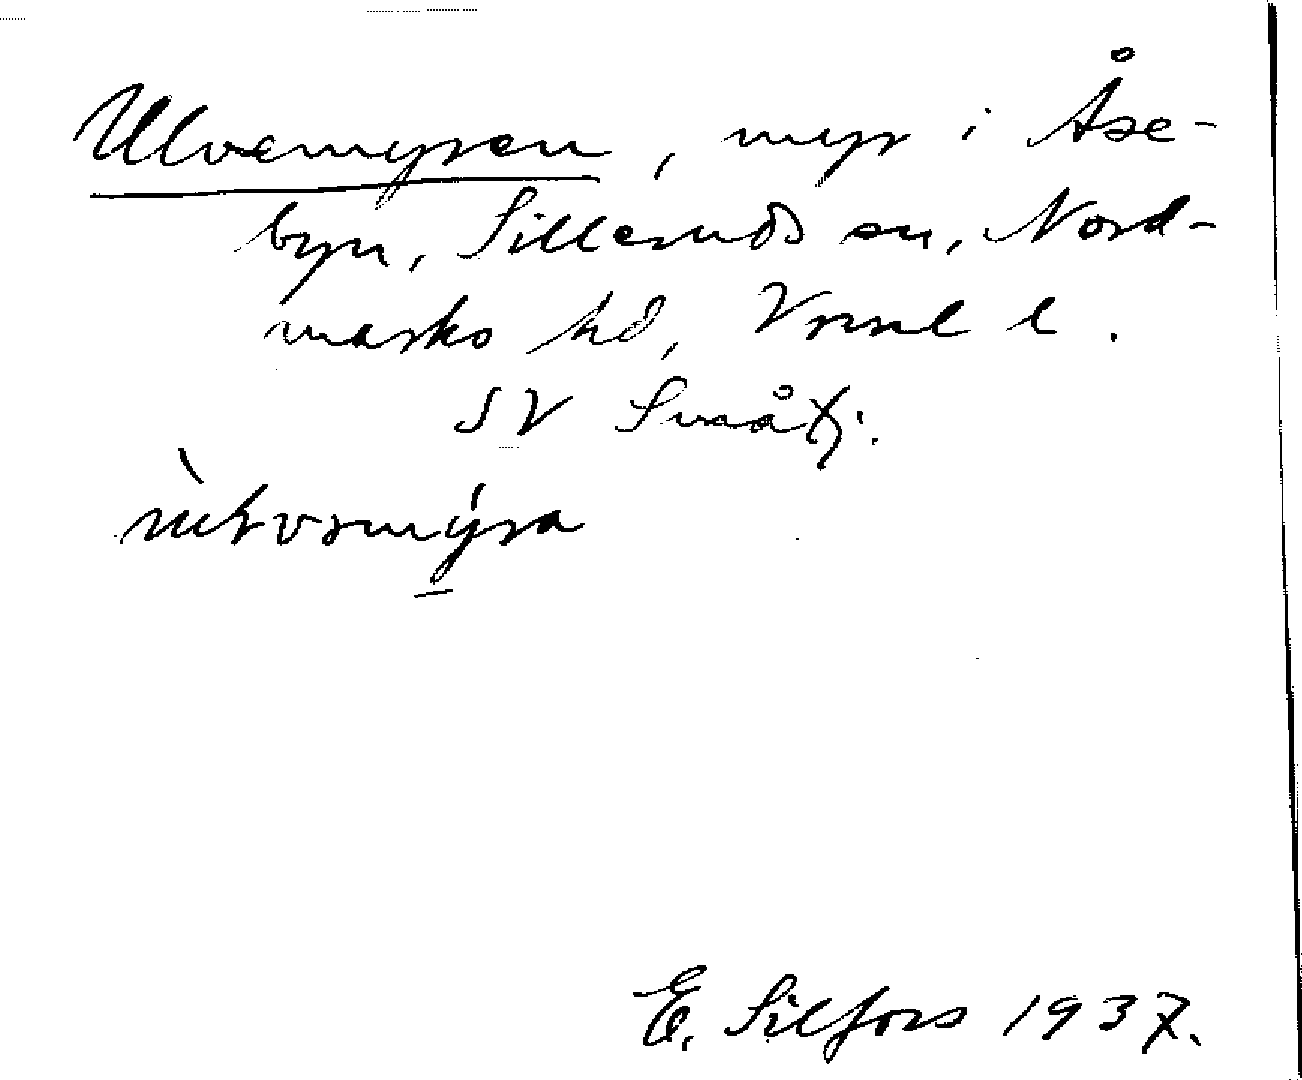 Ulvemyren, myr i Åse-
byn, Silleruds sn, Nord-
marks hd, Vrml l.
SV Svaåtj.
E. Silfors 1937.